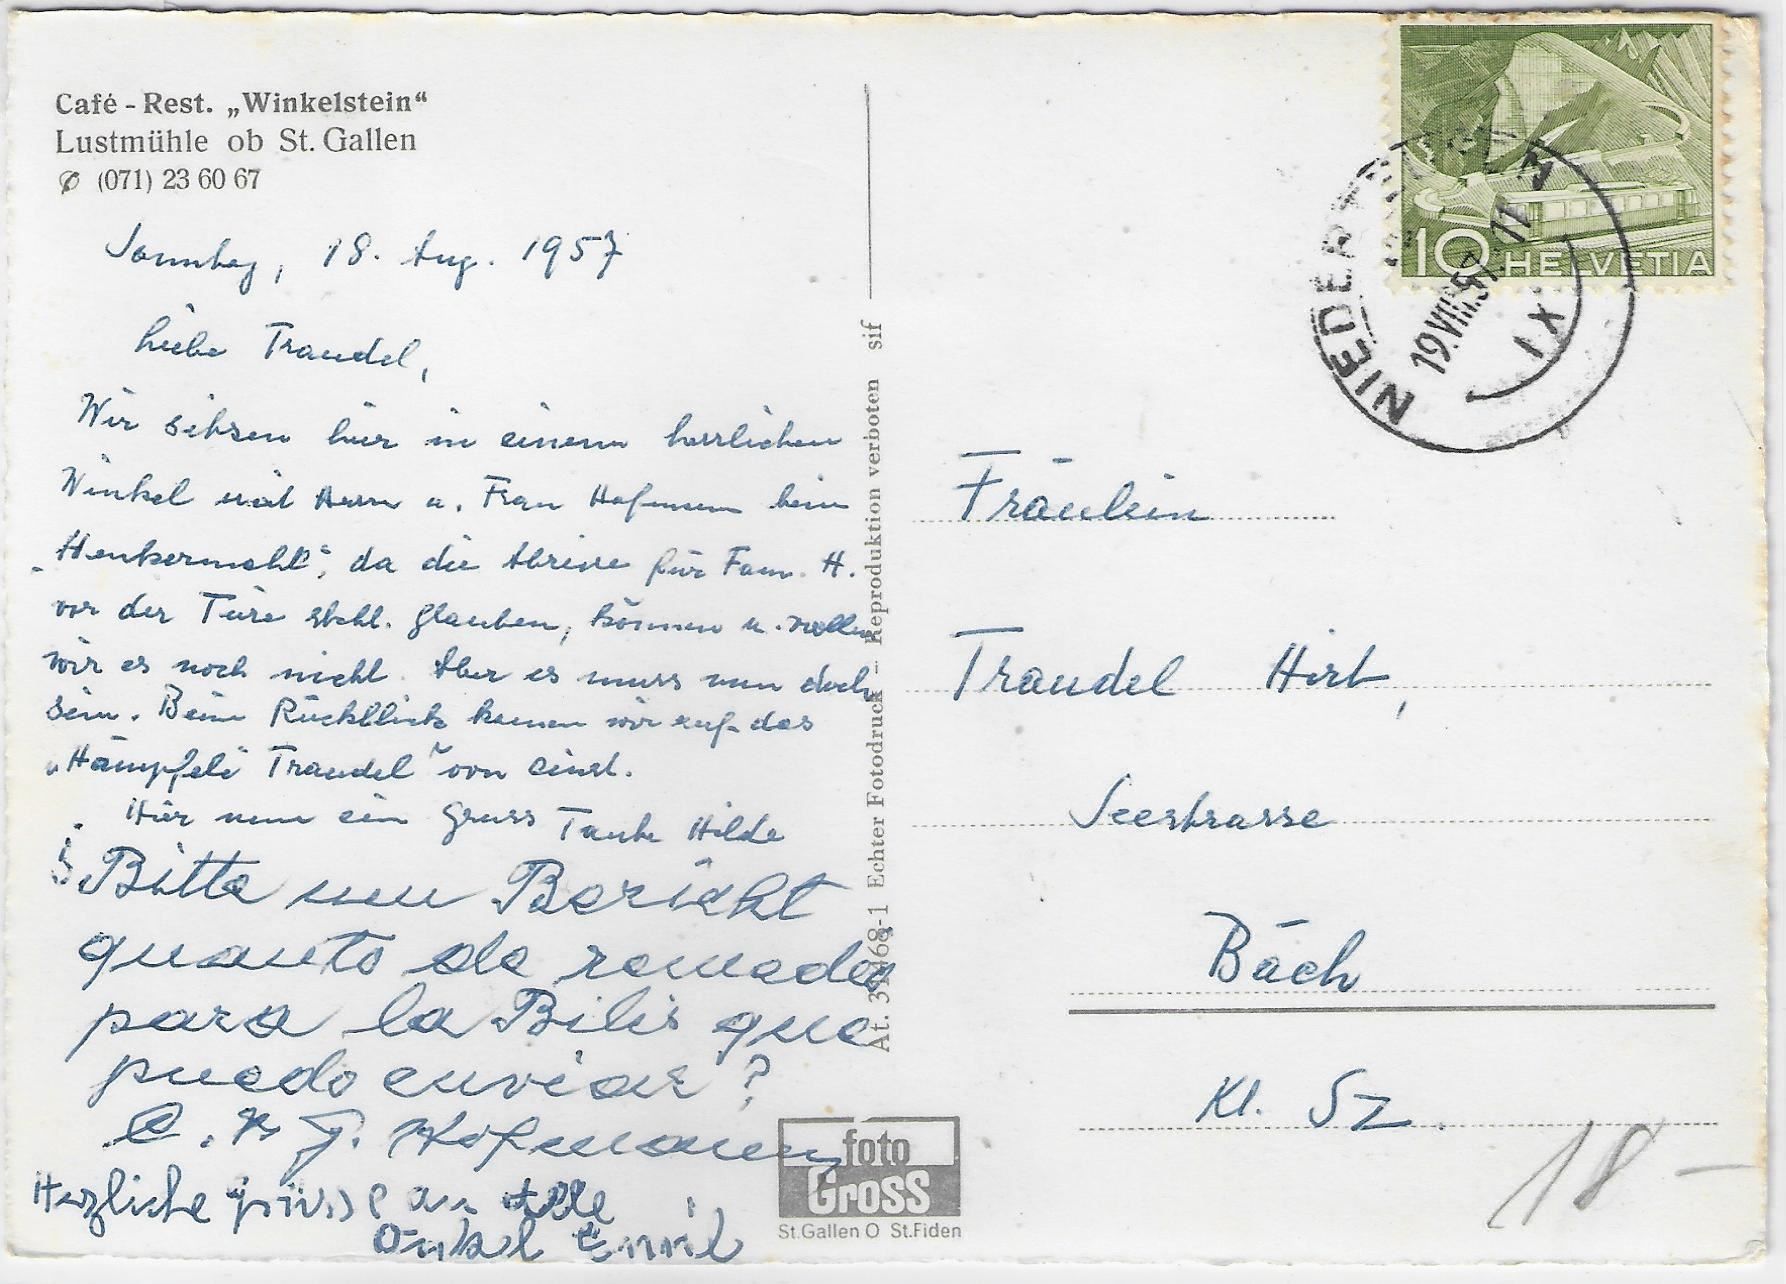 Café - Rest. „Winkelstein“
Lustmühle ob St. Gallen
✆ (071) 23 60 67
Sonntag, 18. Aug. 1957
Liebe Traudel,
Wir sitzen hier in einem herrlichen
Winkel mit Herrn u. Frau Hofmann beim
„Henkermahl“, da die Abreise für Fam. H.
vor der Türe steht. Glauben, können u. wollen
wir es noch nicht. Aber es muss nun doch
sein. Beim Rückblick kamen wir auf das
„Hämpfeli Traudel“ von einst.
Hier nun ein Gruss Tante Hilde
Bitte um Bericht
quanto de remedio
para la Bilis que
puedo enviar?
Hofmann
Herzliche Grüsse an alle
Onkel Emil
At. 31468-1 Echter Fotodruck – Reproduktion verboten sif
foto
Gross
St. Gallen O St. Fiden
10 HELVETIA
NIEDERTEUFEN
19.VIII.57. 11
IX
Fräulein
Traudel Hirt,
Seestrasse
Bäch
Kt. Sz.
18 –